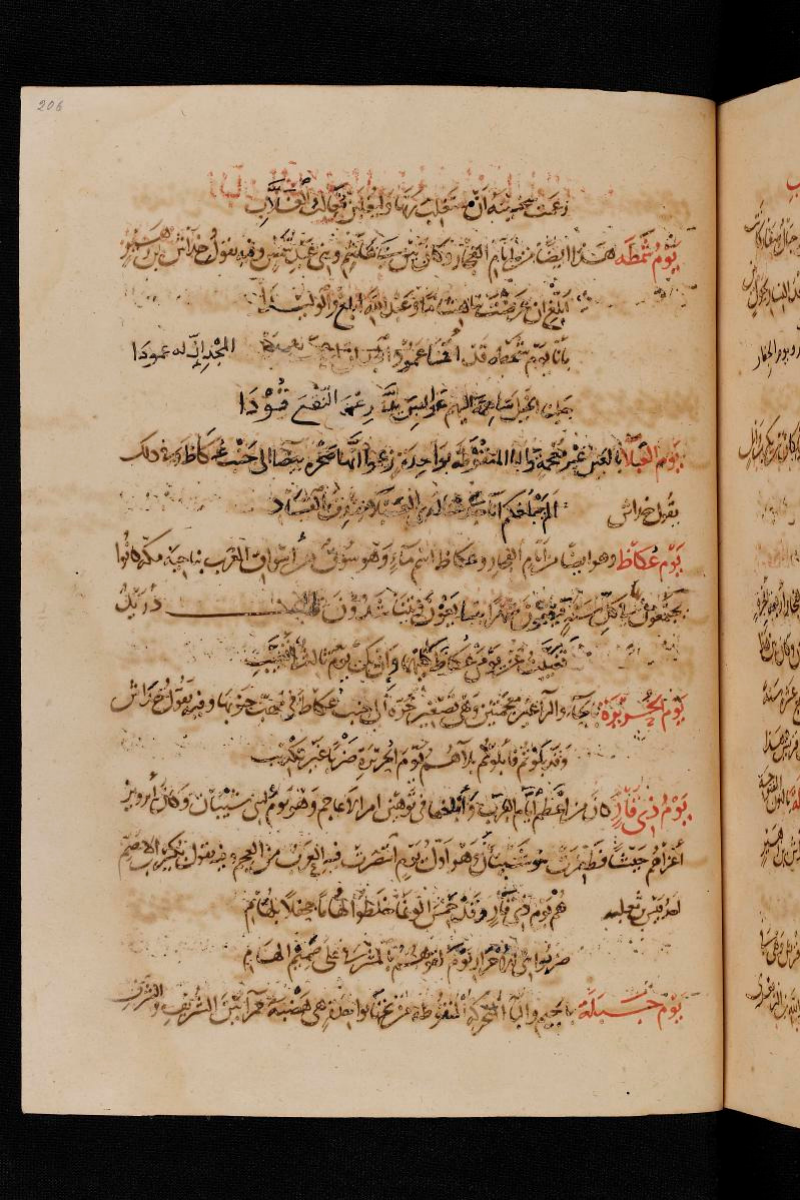 206
زعمت سخينة أن ستغلب ربها وليغلبن مغالب الغلاب
يوم شمطة هذا ايضا من ايام الفجار وكان بين بني هاشم وبني عبد شمس وفيه يقول خداش بن زهير
ابلغ ان عرضت به هشاما وعبد الله ابلغ والوليدا
بأنا يوم شمطة قد أقمنا عمود المجد ان له عمودا
جلبنا الخيل ساهمة اليهم عوابس يدرعن النقع قودا
يوم العبلاء بالعين غير معجمة والباء المنقوطة بواحدة زعموا انها صخرة بيضا الى جنب عكاظ وفي ذلك
يقول خداش الم يبلغكم انا جدعنا لدى العبلاء خندف بالقياد
يوم عكاظ وهو ايضا من ايام الفجار وعكاظ اسم ماء وهو سوق من اسواق العرب بناحية مكة كانوا
يجتمعون بها كل سنة فيقيمون شهرا يتبايعون ويتناشدون دريد
تغيبت عن يومي عكاظ كليهما وان يك يوم ثالث اتغيب
يوم الحريرة بالحاء والراء غير معجمتين وهي تصغير حرة الى جنب عكاظ في مهب جنوبها وفيه يقول خداش
وقد بلوتم فابلوكم بلاءهم يوم الحريرة ضربا غير تكذيب
يوم ذي قار كان من اعظم ايام العرب وابلغها في توهين امر الاعاجم وهو يوم لبني شيبان وكان ابرويز
أغزاهم جيشا فظفرت بنو شيبان وهو أول يوم انتصرت فيه العرب من العجم وفيه يقول بكير الاصم
احد قيس بن ثعلبة هم يوم ذي قار وقد حمس الوغا خلطوا لهاما جحفلا بلهام
ضربوا بني الاحرار يوم لقوهم بالمشرفي على صميم الهام
يوم جبلة بالجيم والباء المتحركة المنقوطة من تحتها بواحدة هي هضبة حمراء بين الشريف والشرف